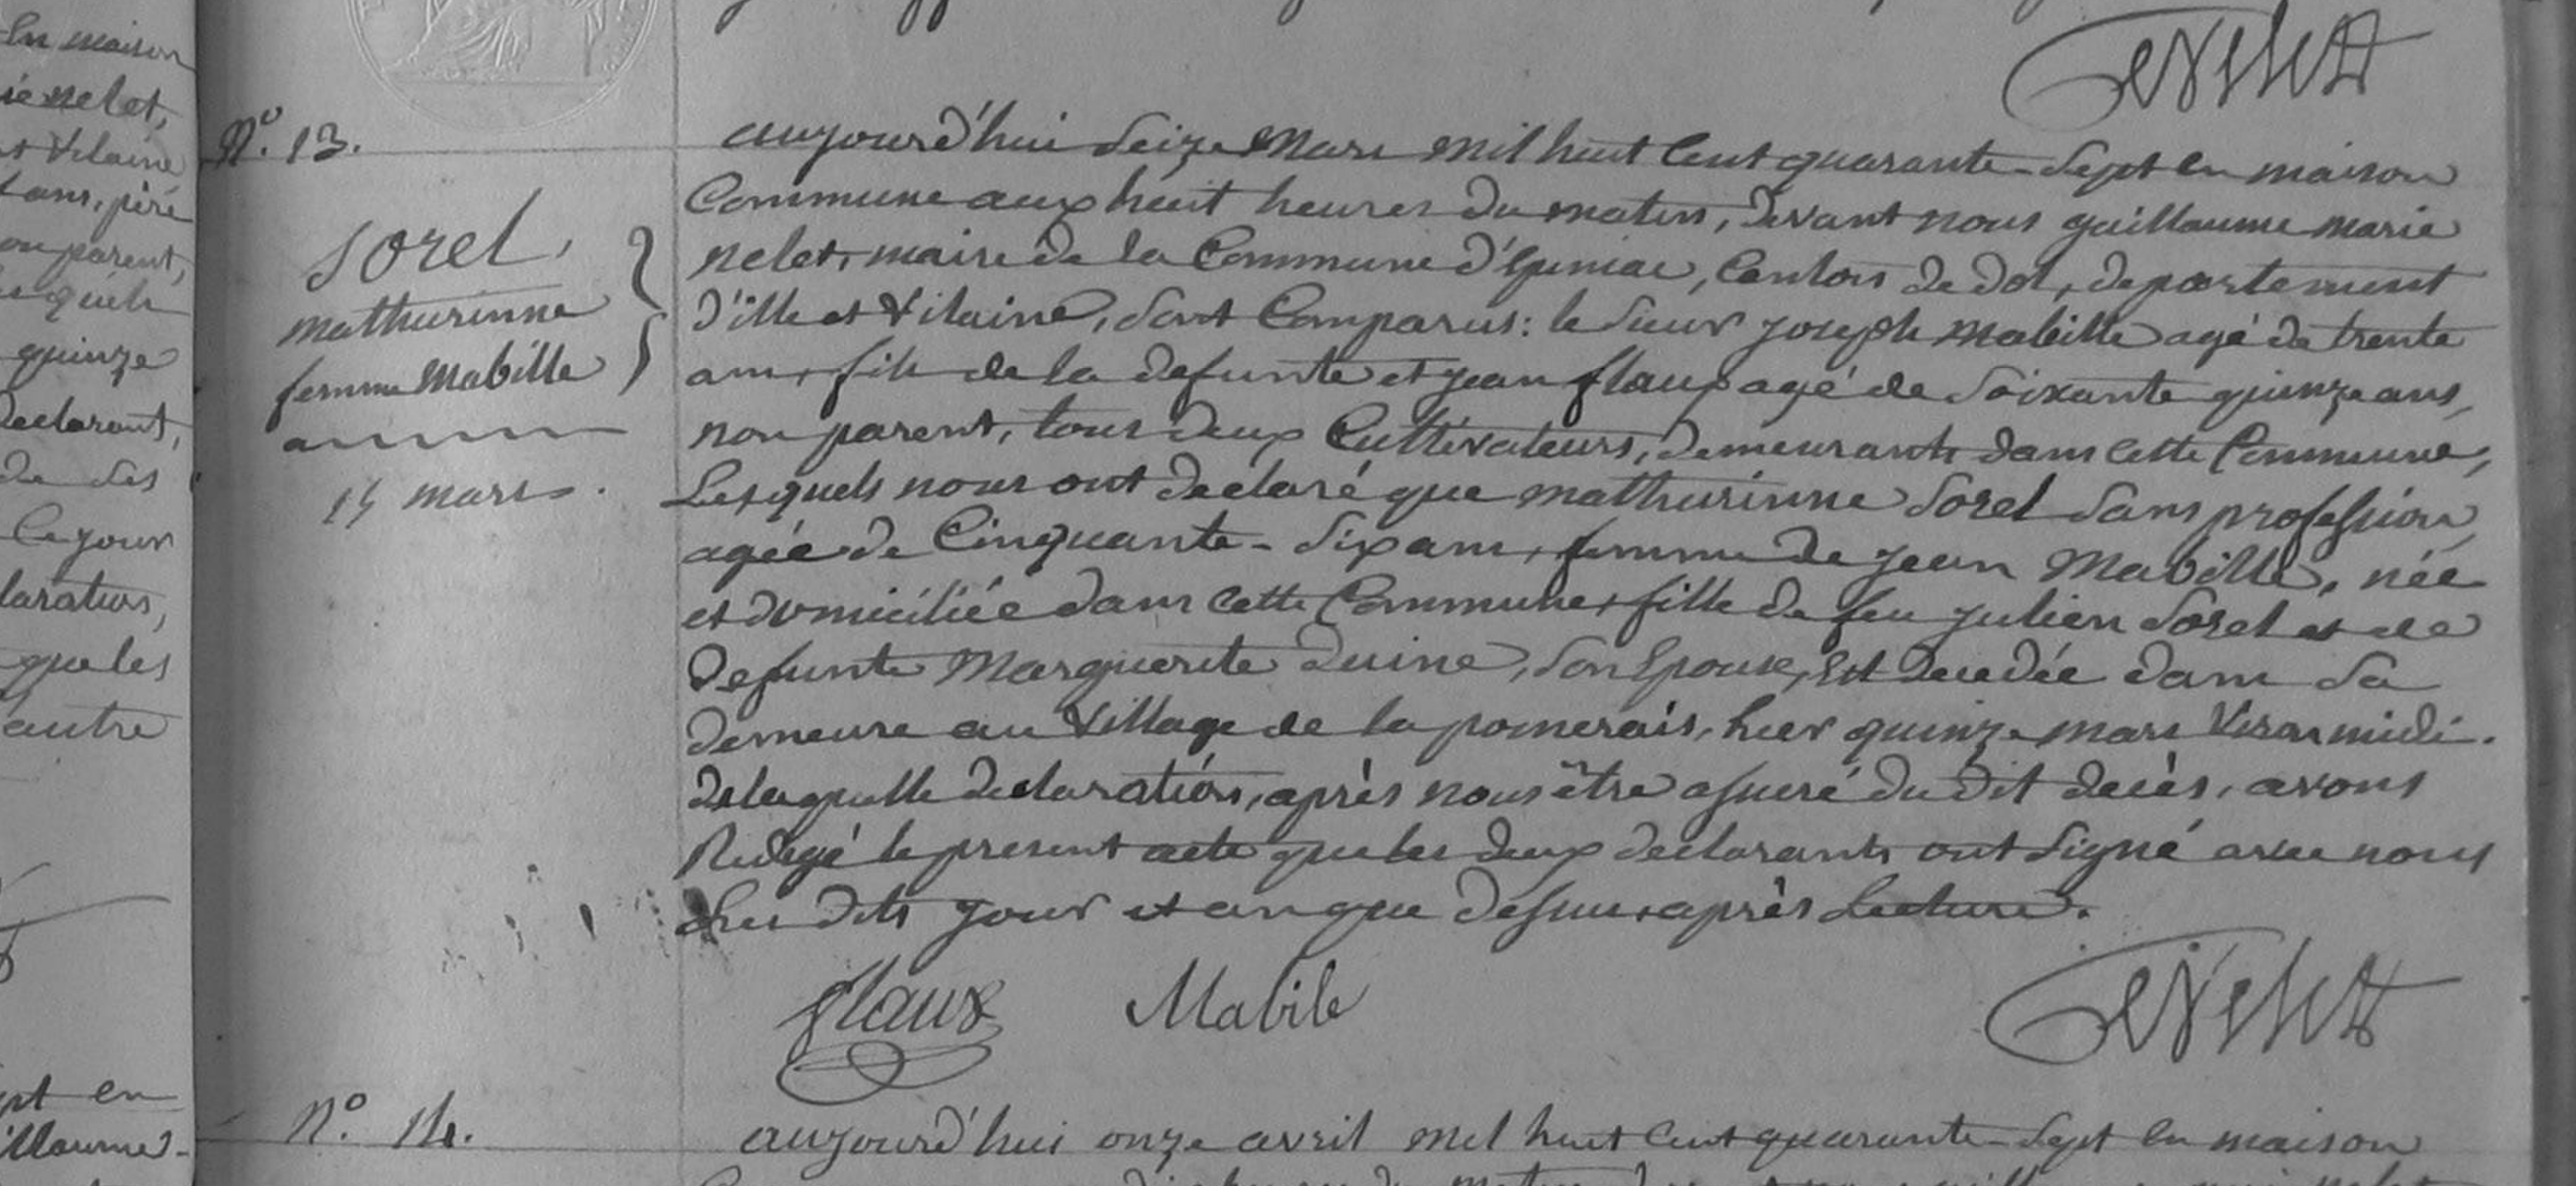 En maison
ie nelet,
et Vilaine
t ans, père
on parent,
esquels
quinze
Declarant,
de ses
Ce jour
laration,
que les
autre
pt en
illaume
N.° 13.
Sorel,
mathurinne
femme Mabille
15 mars.
GNelet
aujourd'hui Seize Mars mil huit Cent quarante-Sept En maison
Commune aux huit heures du matin, devant nous guillaume marie
nelet, maire de la Commune d'Epiniac, Canton de dol, departement
d'ille et Vilaine, Sont Comparus: le Sieur joseph Mabille agé de trente
ans, fils de la defunte et jean flaux agé de Soixante quinze ans,
non parent, tous deux Cultivateurs, demeurants dans Cette Commune,
Lesquels nous ont declaré que mathurinne Sorel Sans profession,
agée de Cinquante-Six ans, femme de jean Mabille, née
et domiciliée dans Cette Commune, fille de feu julien Sorel et de
Defunte Marguerite duine, Son Epouse, Est decedée dans Sa
demeure au Village de la pomerais, hier quinze mars Vers midi.
de laquelle declaration, après nous être assuré du dit decès, avons
Redigé le present acte que les deux declarants ont Signé avec nous
Les dits jour et an que dessus, après Lecture.
flaux Mabile GNelet
N.° 14.
aujourd'hui onze avril mil huit Cent quarante-Sept En maison